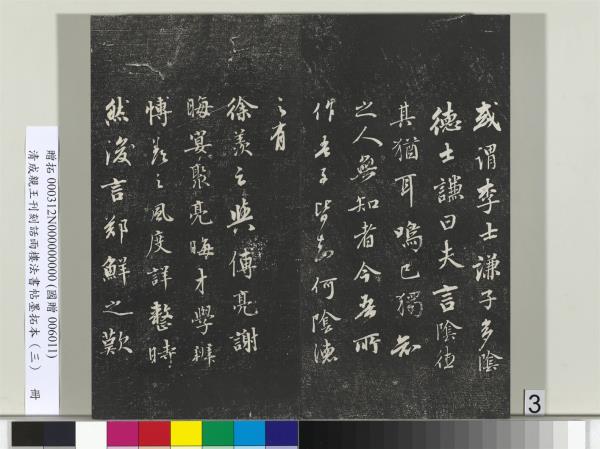 或謂李士謙子多陰
德士謙曰夫言陰德
其猶耳鳴己獨知
之人無知者今吾所
作吾子皆知何陰德
之有
徐羨之與傅亮謝
晦宴聚亮晦才學辯
博羨之風度詳整時
然後言鄭鮮之歎
贈拓000312N000000000(國贈006011)
清成親王刊刻詒晉樓法書帖墨拓本(三) 冊
3